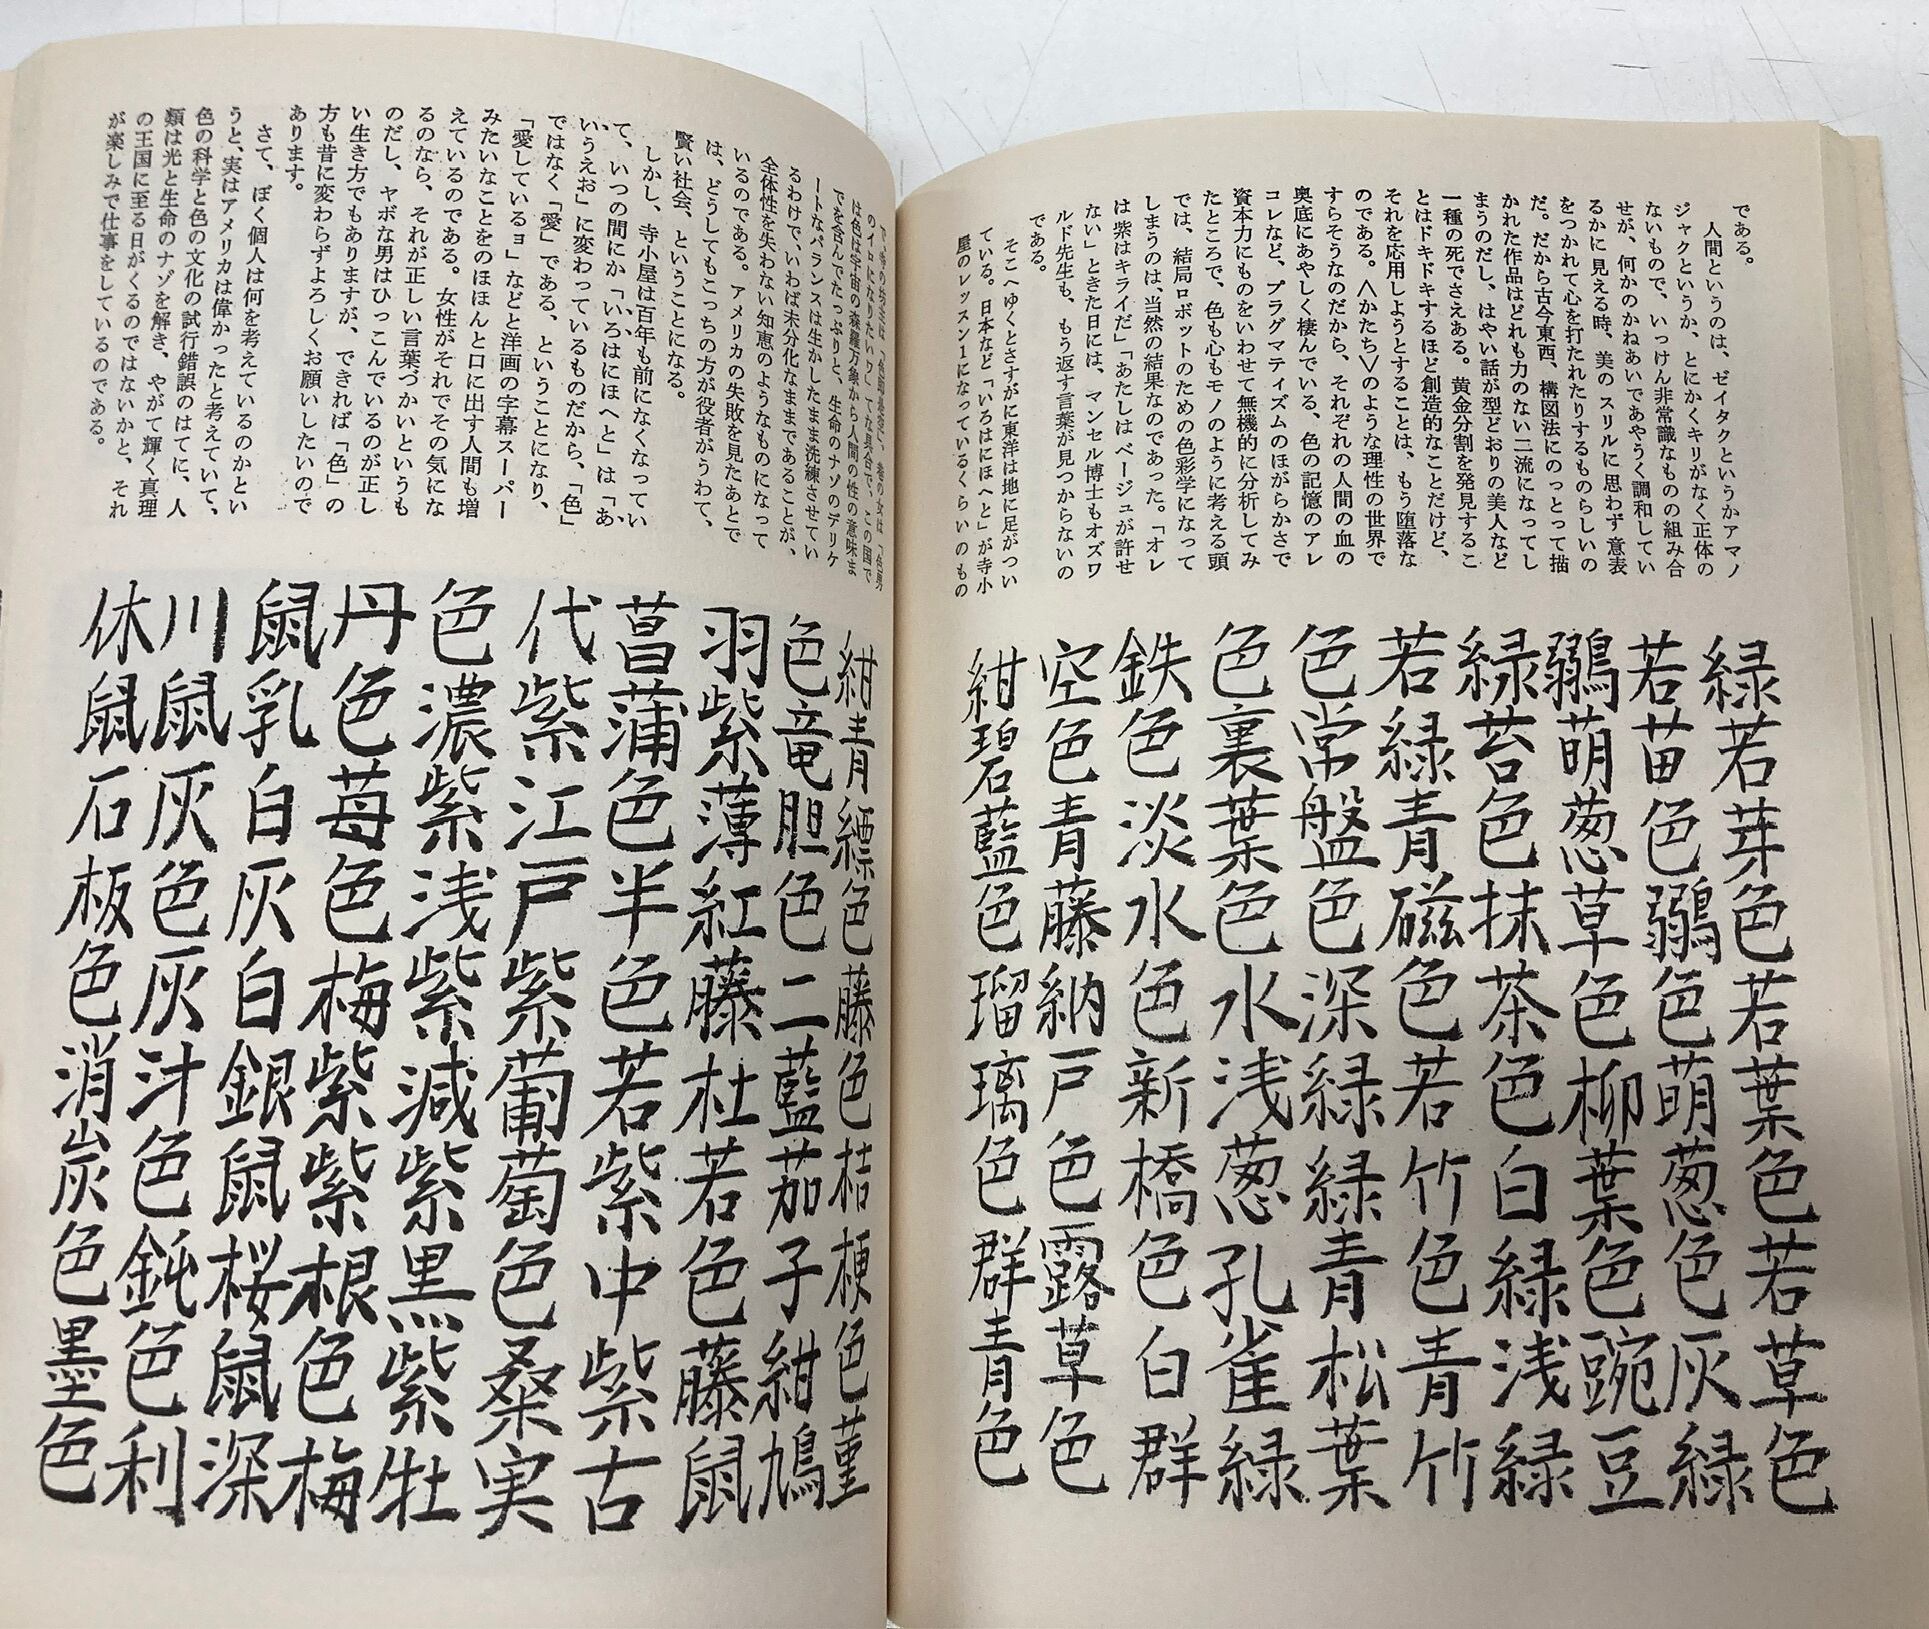 である。
人間というのは、ゼイタクというかアマノ
ジャクというか、とにかくキリがなく正体の
ないもので、いっけん非常識なものの組み合
せが、何かのかねあいであやうく調和してい
るかに見える時、美のスリルに思わず意表
をつかれて心を打たれたりするものらしいの
だ。だから古今東西、構図法にのっとって描
かれた作品はどれも力のない二流になってし
まうのだし、はやい話が型どおりの美人など
一種の死でさえある。黄金分割を発見するこ
とはドキドキするほど創造的なことだけど、
それを応用しようとすることは、もう堕落な
のである。〈かたち〉のような理性の世界で
すらそうなのだから、それぞれの人間の血の
奥底にあやしく棲んでいる、色の記憶のアレ
コレなど、プラグマティズムのほがらかさで
資本力にものをいわせて無機的に分析してみ
たところで、色も心もモノのように考える頭
では、結局ロボットのための色彩学になって
しまうのは、当然の結果なのであった。「オレ
は紫はキライだ」「あたしはベージュが許せ
ない」ときた日には、マンセル博士もオズワ
ルド先生も、もう返す言葉が見つからないの
である。
そこへゆくとさすがに東洋は地に足がつい
ている。日本など「いろはにほへと」が寺小
屋のレッスン1になっているくらいのもの
緑若芽色若葉色若草色
若苗色鶸色萌葱色灰緑
鶸萌葱草色柳葉色豌豆
緑苔色抹茶色白緑浅緑
若緑青磁色若竹色青竹
色常盤色深緑緑青松葉
色裏葉色水浅葱孔雀緑
鉄色淡水色新橋色白群
空色青藤納戸色露草色
紺碧藍色瑠璃色群青色
のイロになりたいワ」てな具合で、この国で
は色は宇宙の森羅万象から人間の性の意味ま
でを含んでたっぷりと、生命のナゾのデリケ
ートなバランスは生かしたまま洗練させてい
るわけで、いわば未分化なままであることが、
全体性を失わない知恵のようなものになって
いるのである。アメリカの失敗を見たあとで
は、どうしてもこっちの方が役者がうわて、
賢い社会、ということになる。
しかし、寺小屋は百年も前になくなってい
て、いつの間にか「いろはにほへと」は「あ
いうえお」に変わっているものだから、「色」
ではなく「愛」である、ということになり、
「愛しているョ」などと洋画の字幕スーパー
みたいなことをのほほんと口に出す人間も増
えているのである。女性がそれでその気にな
るのなら、それが正しい言葉づかいというも
のだし、ヤボな男はひっこんでいるのが正し
い生き方でもありますが、できれば「色」の
方も昔に変わらずよろしくお願いしたいので
あります。
さて、ぼく個人は何を考えているのかとい
うと、実はアメリカは偉かったと考えていて、
色の科学と色の文化の試行錯誤のはてに、人
類は光と生命のナゾを解き、やがて輝く真理
の王国に至る日がくるのではないかと、それ
が楽しみで仕事をしているのである。
紺青縹色藤色桔梗色菫
色竜胆色二藍茄子紺鳩
羽紫薄紅藤杜若色藤鼠
菖蒲色半色若紫中紫古
代紫江戸紫葡萄色桑実
色濃紫浅紫減紫黒紫牡
丹色苺色梅紫紫根色梅
鼠乳白灰白銀鼠桜鼠深
川鼠灰色灰汁色鈍色利
休鼠石板色消炭色墨色